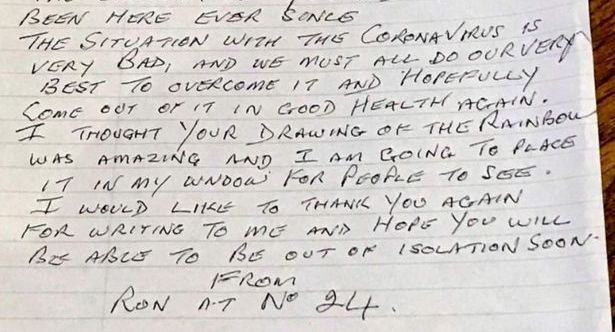 BEEN HERE EVER SINCE
THE SITUATION WITH THE CORONAVIRUS IS
VERY BAD, AND WE MUST ALL DO OUR VERY
BEST TO OVERCOME IT AND HOPEFULLY
COME OUT OF IT IN GOOD HEALTH AGAIN.
I THOUGHT YOUR DRAWING OF THE RAINBOW
WAS AMAZING AND I AM GOING TO PLACE
IT IN MY WINDOW FOR PEOPLE TO SEE.
I WOULD LIKE TO THANK YOU AGAIN
FOR WRITING TO ME AND HOPE YOU WILL
BE ABLE TO BE OUT OF ISOLATION SOON.
FROM
RON AT Nº 24.